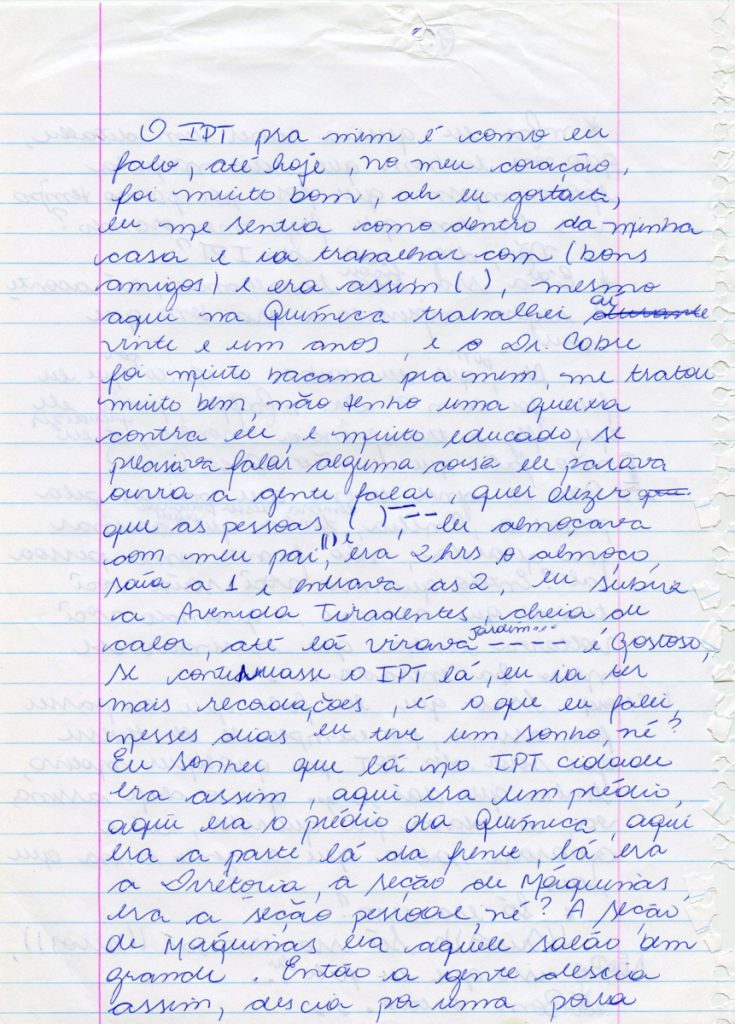 O IPT pra mim é como eu
falo, até hoje, no meu coração,
foi muito bom, ah eu gostava,
eu me sentia como dentro da minha
casa e ia trabalhar com (bons
amigos) e era assim ( ), mesmo
aqui na Química trabalhei aí durante
vinte e um anos, e o Dr. Cobre
foi muito bacana pra mim, me tratou
muito bem, não tenho uma queixa
contra ele, é muito educado, se
precisava falar alguma coisa ele parava
ouvia a gente falar, quer dizer que
que as pessoas ( ) ---, eu almoçava
com meu pai, (( )) e era 2hrs o almoço,
saía a 1 e entrava as 2, eu subia
a Avenida Tiradentes, cheia de
calor, até lá virava Jardim... ---- é Gostoso,
se continuasse o IPT lá, eu ia ter
mais recordações, é o que eu falei,
nesses dias eu tive um sonho, né?
Eu sonhei que lá no IPT cidade
era assim, aqui era um prédio,
aqui era o prédio da Química, aqui
era a parte lá da frente, lá era
a Diretoria, a seção de Máquinas
era a seção pessoal, né? A seção
de Máquinas era aquele salão bem
grande. Então a gente descia
assim, descia por uma